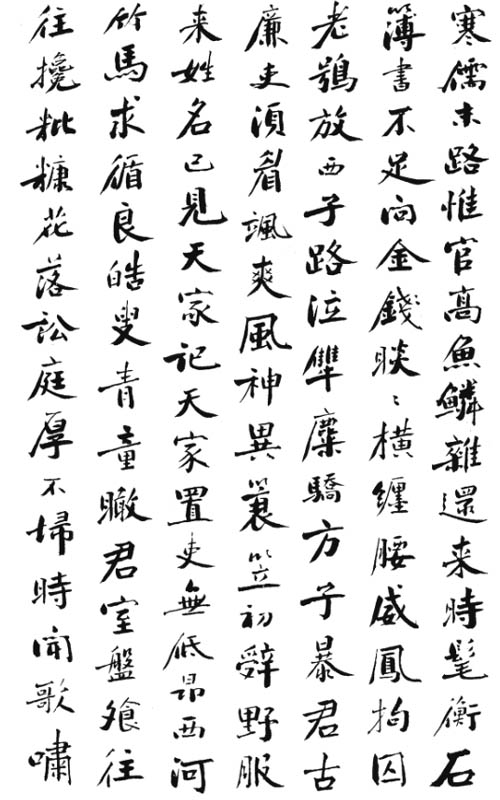 寒儒末路惟官高魚鱗雜還来時髦衡石
簿書不足問金錢睒〻橫纏腰威鳳拘囚
老鴞放西子路泣隼麋驕方子暴君古
廉吏須眉颯爽風神異簑笠初辭野服
来姓名已見天家記天家置吏無低昂西河
竹馬求循良皓叟青童瞰君室盤飧往
往攙粃糠花落訟庭厚不掃時聞歌嘯